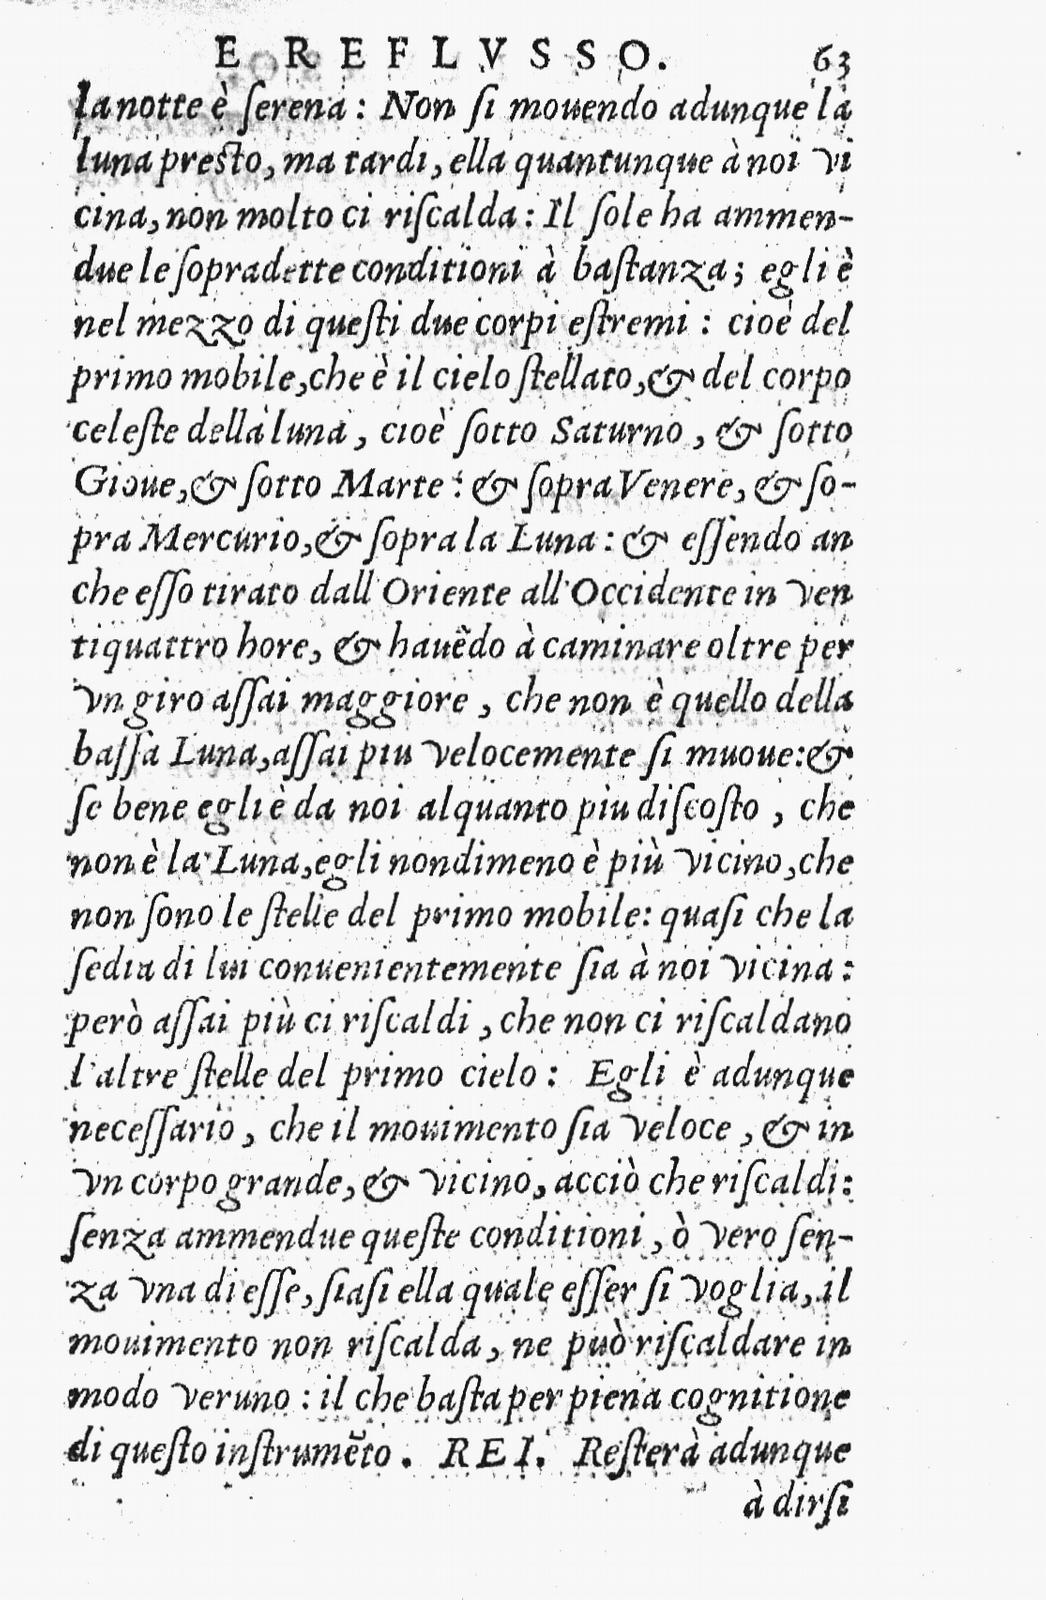 E REFLVSSO. 63
la notte è ſerena: Non ſi mouendo adunque la
luna preſto, ma tardi, ella quantunque à noi vi
cina, non molto ci riſcalda: Il ſole ha ammen-
due le ſopradette conditioni à baſtanza; egli è
nel mezzo di queſti due corpi eſtremi: cioè del
primo mobile, che è il cielo ſtellato, & del corpo
celeſte della luna, cioè ſotto Saturno, & ſotto
Gioue, & ſotto Marte: & ſopra Venere, & ſo-
pra Mercurio, & ſopra la Luna: & eſſendo an
che eſſo tirato dall'Oriente all'Occidente in ven
tiquattro hore, & hauẽdo à caminare oltre per
vn giro aſſai maggiore, che non è quello della
baſſa Luna, aſſai piu velocemente ſi muoue: &
ſe bene egli è da noi alquanto piu diſcoſto, che
non è la Luna, egli nondimeno è più vicino, che
non ſono le ſtelle del primo mobile: quaſi che la
ſedia di lui conuenientemente ſia à noi vicina:
però aſſai più ci riſcaldi, che non ci riſcaldano
l'altre ſtelle del primo cielo: Egli è adunque
neceſſario, che il mouimento ſia veloce, & in
vn corpo grande, & vicino, acciò che riſcaldi:
ſenza ammendue queſte conditioni, ò vero ſen-
za vna di eſſe, ſiaſi ella quale eſſer ſi voglia, il
mouimento non riſcalda, ne può riſcaldare in
modo veruno: il che baſta per piena cognitione
di queſto inſtrumẽto. REI. Reſterà adunque
à dirſi